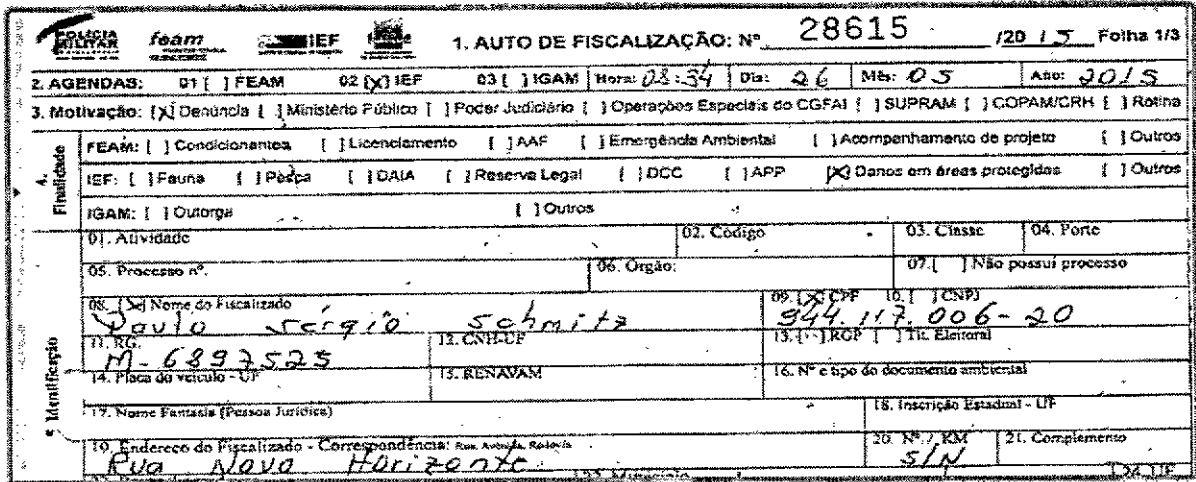 POLÍCIA MILITAR feam IEF 1. AUTO DE FISCALIZAÇÃO: Nº 28615 /20 15 Folha 1/3
2. AGENDAS: 01 [ ] FEAM 02 [X] IEF 03 [ ] IGAM Hora: 08:34 Dia: 26 Mês: 05 Ano: 2015
3. Motivação: [X] Denúncia [ ] Ministério Público [ ] Poder Judiciário [ ] Operações Especiais do CGFAI [ ] SUPRAM [ ] COPAM/CRH [ ] Rotina
4. Finalidade
FEAM: [ ] Condicionantes [ ] Licenciamento [ ] AAF [ ] Emergência Ambiental [ ] Acompanhamento de projeto [ ] Outros
IEF: [ ] Fauna [ ] Pesca [ ] DAIA [ ] Reserva Legal [ ] DCC [ ] APP [X] Danos em áreas protegidas [ ] Outros
IGAM: [ ] Outorga [ ] Outros
01. Atividade 02. Código 03. Classe 04. Porte
05. Processo nº. 06. Órgão: 07. [ ] Não possui processo
e Identificação
08. [X] Nome do Fiscalizado 09. [X] CPF 10. [ ] CNPJ
Paulo Sérgio Schmitz 944.117.006-20
11. RG. 12. CNH-UF 13. [ ] RGP [ ] Tít. Eleitoral
M-6897525
14. Placa do veículo - UF 15. RENAVAM 16. Nº e tipo do documento ambiental
17. Nome Fantasia (Pessoa Jurídica) 18. Inscrição Estadual - UF
19. Endereço do Fiscalizado - Correspondência: Rua, Avenida, Rodovia 20. Nº. / KM 21. Complemento
Rua Nova Horizonte S/N
23. Município 24. UF